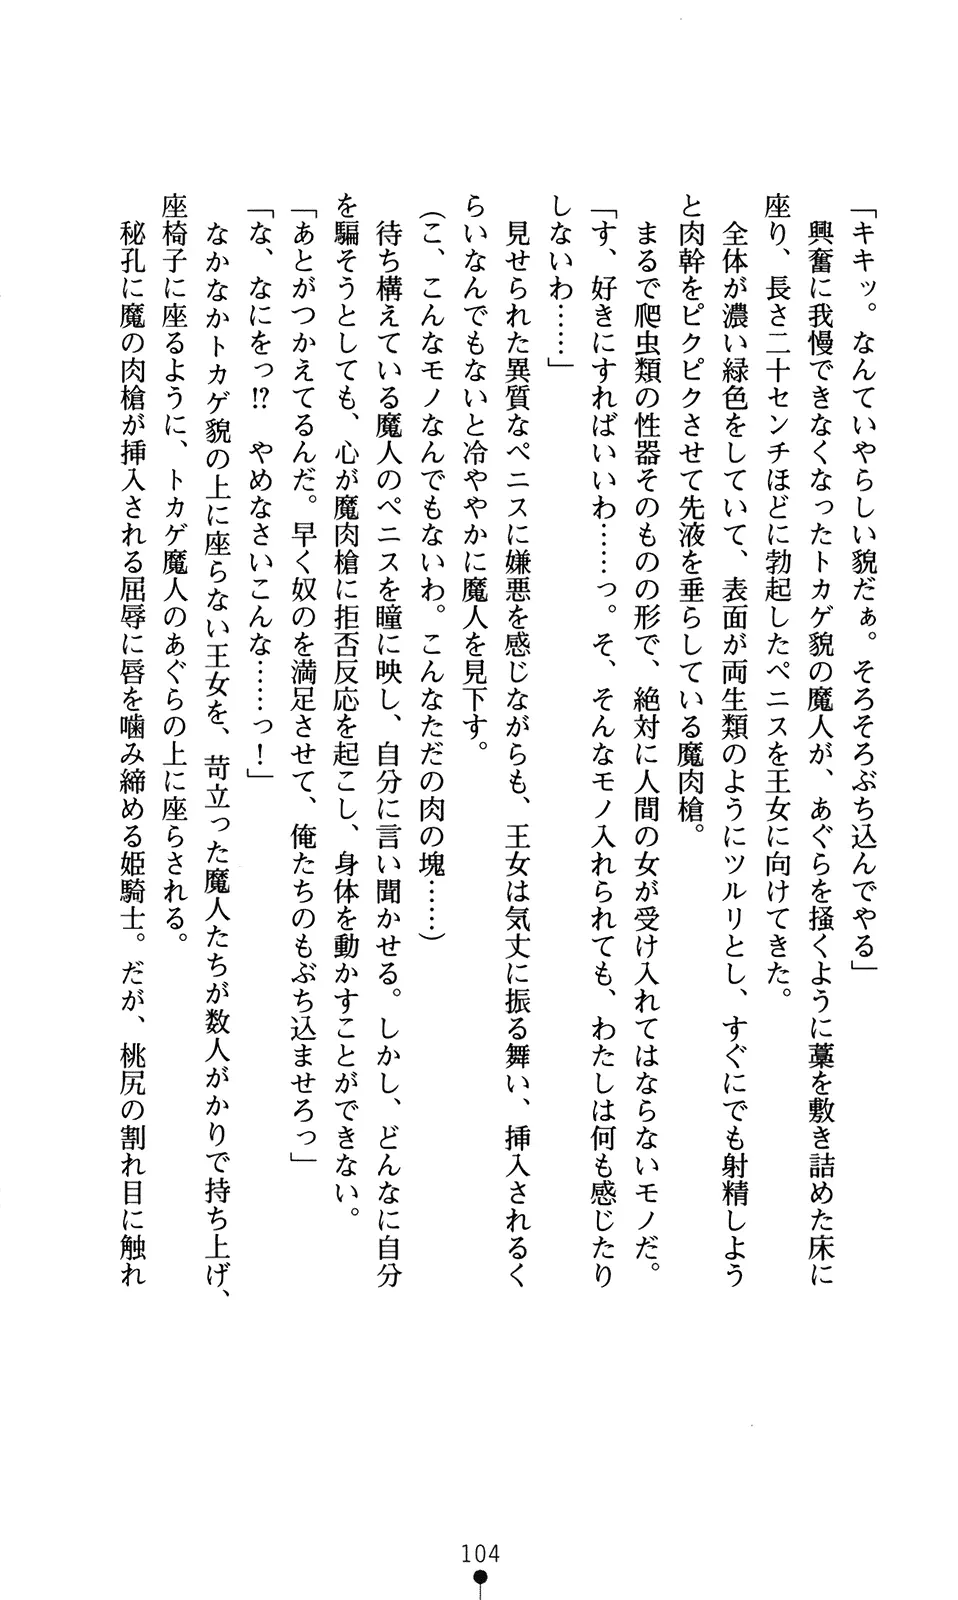 「キキッ。なんていやらしい貌だぁ。そろそろぶち込んでやる」
　興奮に我慢できなくなったトカゲ貌の魔人が、あぐらを掻くように藁を敷き詰めた床に
座り、長さ二十センチほどに勃起したペニスを王女に向けてきた。
　全体が濃い緑色をしていて、表面が両生類のようにツルリとし、すぐにでも射精しよう
と肉幹をピクピクさせて先液を垂らしている魔肉槍。
　まるで爬虫類の性器そのものの形で、絶対に人間の女が受け入れてはならないモノだ。
「す、好きにすればいいわ……っ。そ、そんなモノ入れられても、わたしは何も感じたり
しないわ……」
　見せられた異質なペニスに嫌悪を感じながらも、王女は気丈に振る舞い、挿入されるく
らいなんでもないと冷ややかに魔人を見下す。
（こ、こんなモノなんでもないわ。こんなただの肉の塊……）
　待ち構えている魔人のペニスを瞳に映し、自分に言い聞かせる。しかし、どんなに自分
を騙そうとしても、心が魔肉槍に拒否反応を起こし、身体を動かすことができない。
「あとがつかえてるんだ。早く奴のを満足させて、俺たちのもぶち込ませろっ」
「な、なにをっ!?　やめなさいこんな……っ！」
　なかなかトカゲ貌の上に座らない王女を、苛立った魔人たちが数人がかりで持ち上げ、
座椅子に座るように、トカゲ魔人のあぐらの上に座らされる。
　秘孔に魔の肉槍が挿入される屈辱に唇を噛み締める姫騎士。だが、桃尻の割れ目に触れ
104